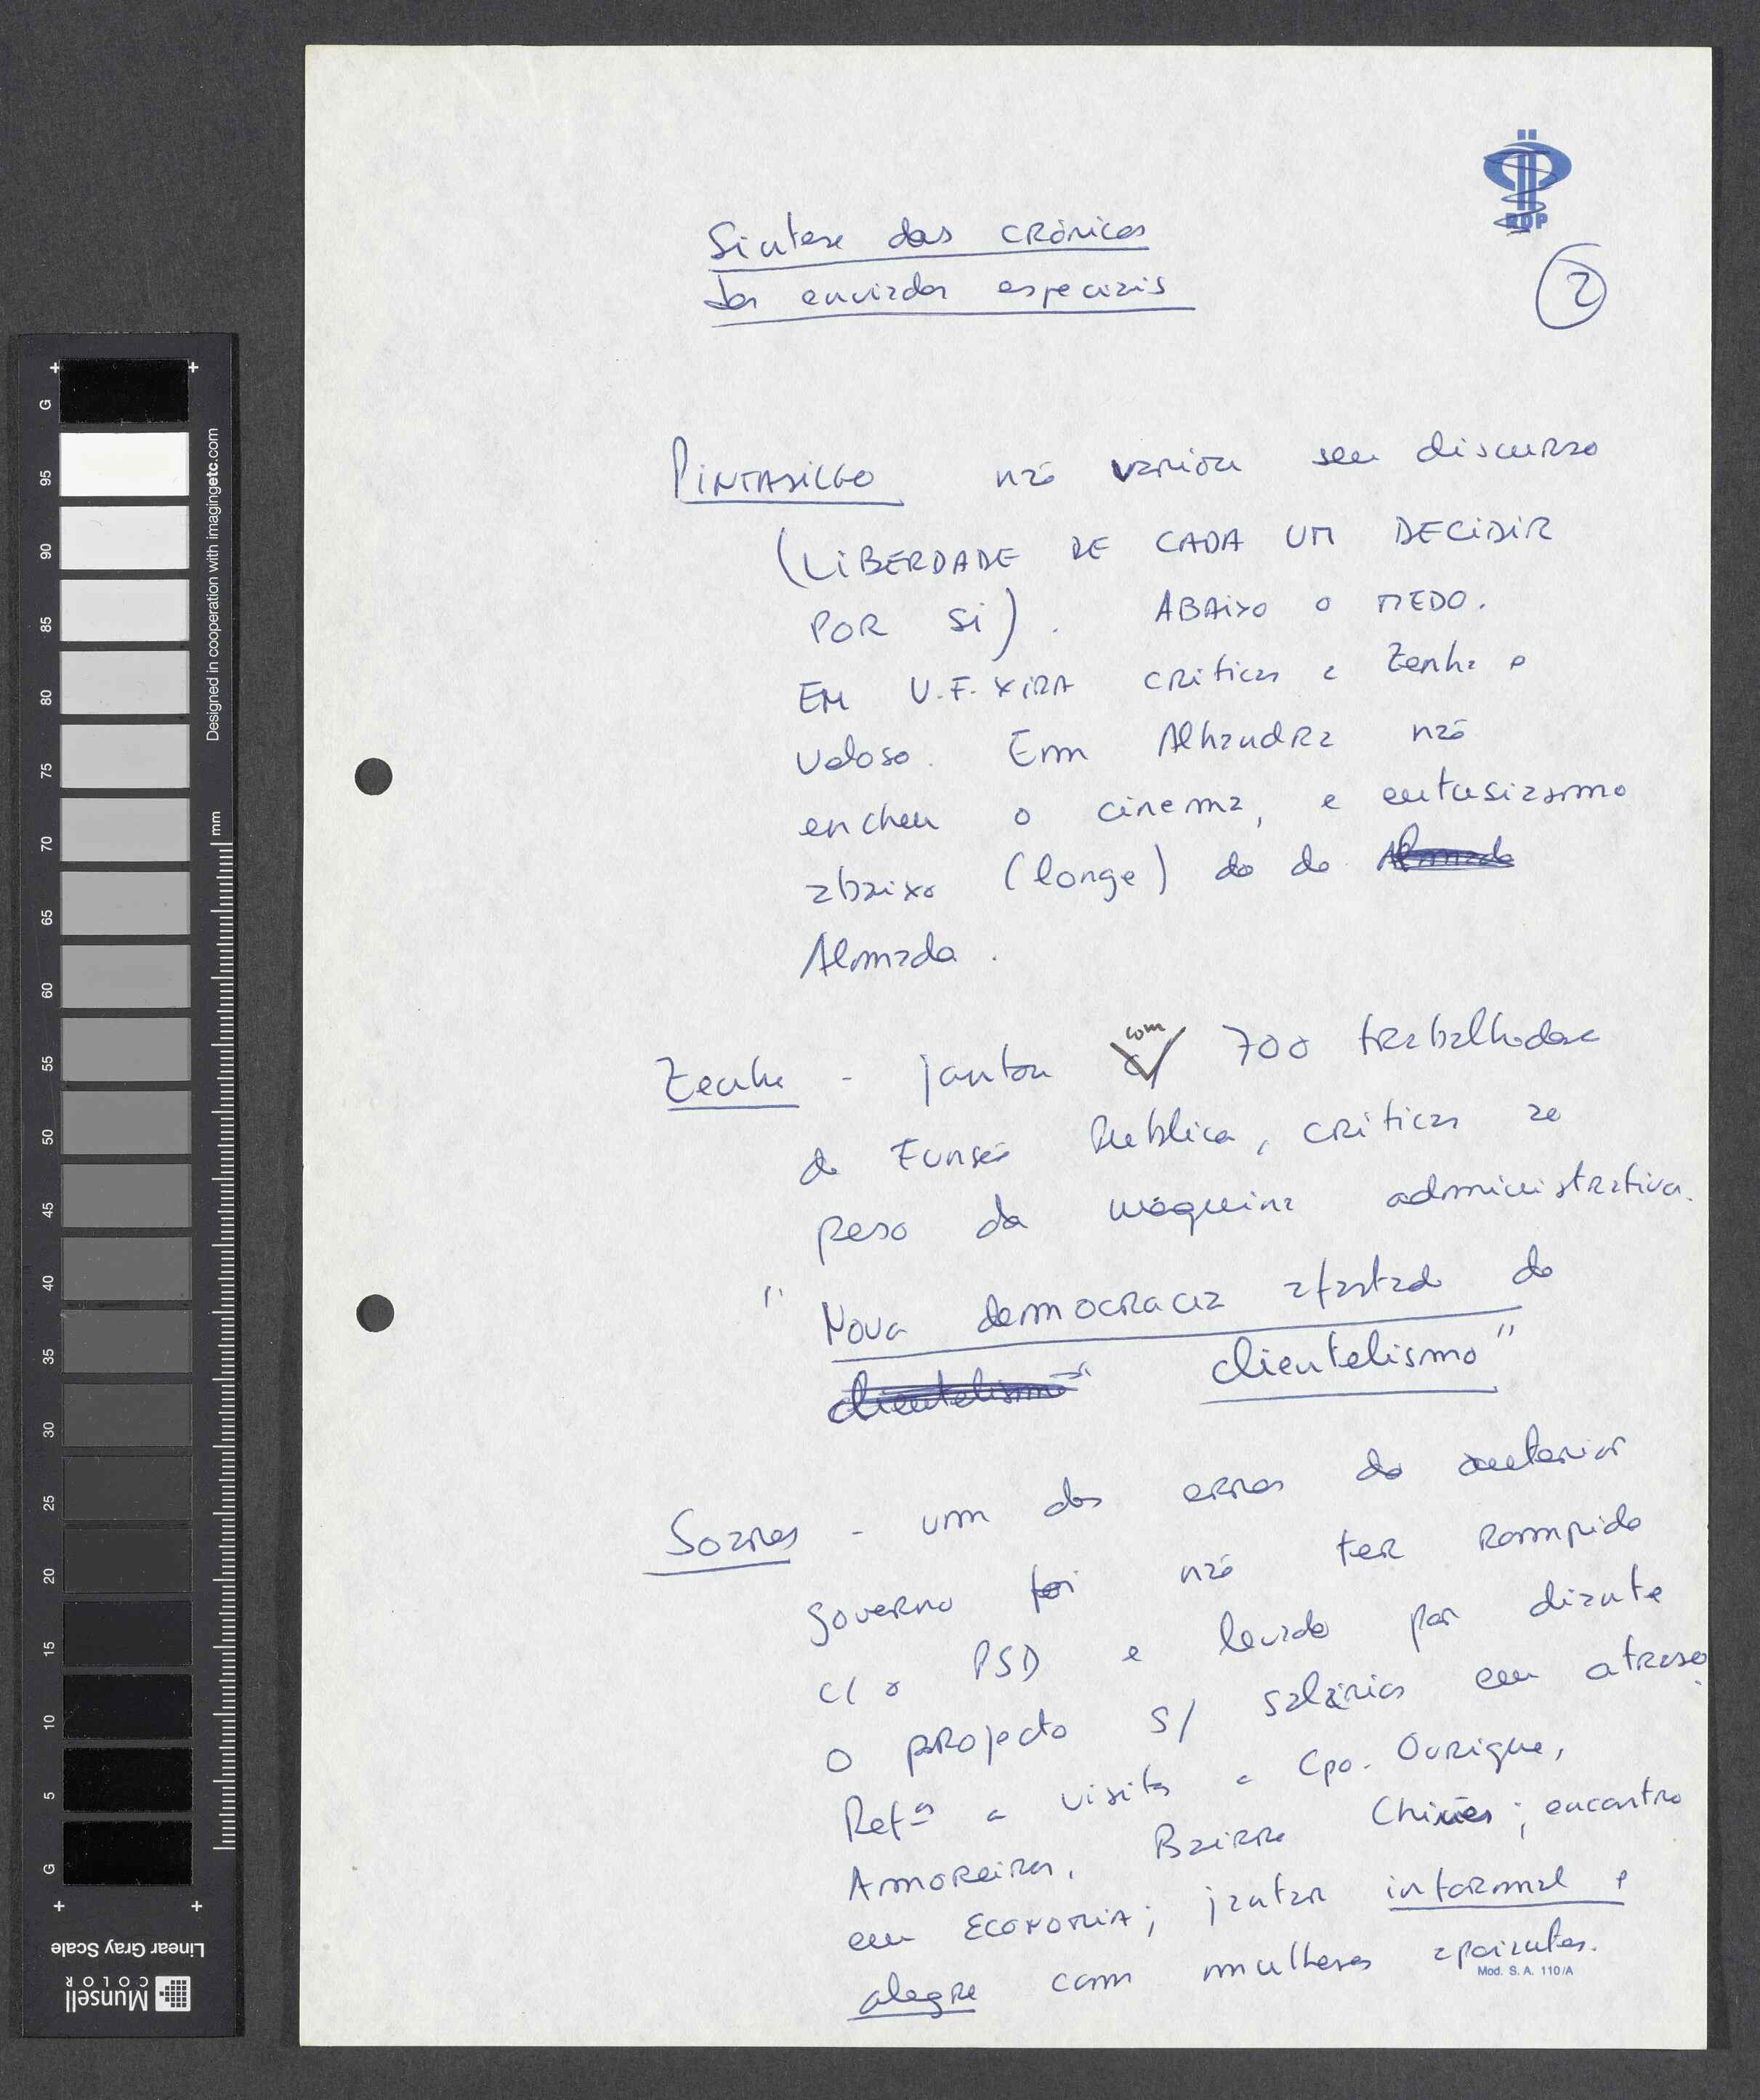 RDP
Sintese das crónicas
dos enviados especiais
2
PINTASILGO não variou seu discurso
(LIBERDADE DE CADA UM DECIDIR
POR SI). ABAIXO O MEDO.
EM V.F. XIRA criticas a Zenha e
Veloso. Em Alhandra não
encheu o cinema, e entusiasmo
abaixo (longe) do de Almada
Almada.
com
Zenha - jantou c/ 700 trabalhadores
da Função Publica, criticas ao
peso da máquina administrativa.
" Nova democracia afastada do
clientelismo" clientelismo"
Soares - um dos erros do anterior
governo foi não ter rompido
c/ o PSD e levado por diante
o projecto s/ salários em atraso.
Refªs a visitas a Cpo. Ourique,
Amoreiras, Bairro Chinês; encontro
em ECONOMIA; jantar informal e
alegre com mulheres apoiantes.
Mod. S. A. 110/A
G
95
90
85
80
75
70
65
60
55
50
45
40
35
30
25
20
15
10
5
G
mm
Designed in cooperation with imagingetc.com
Linear Gray Scale
Munsell
COLOR